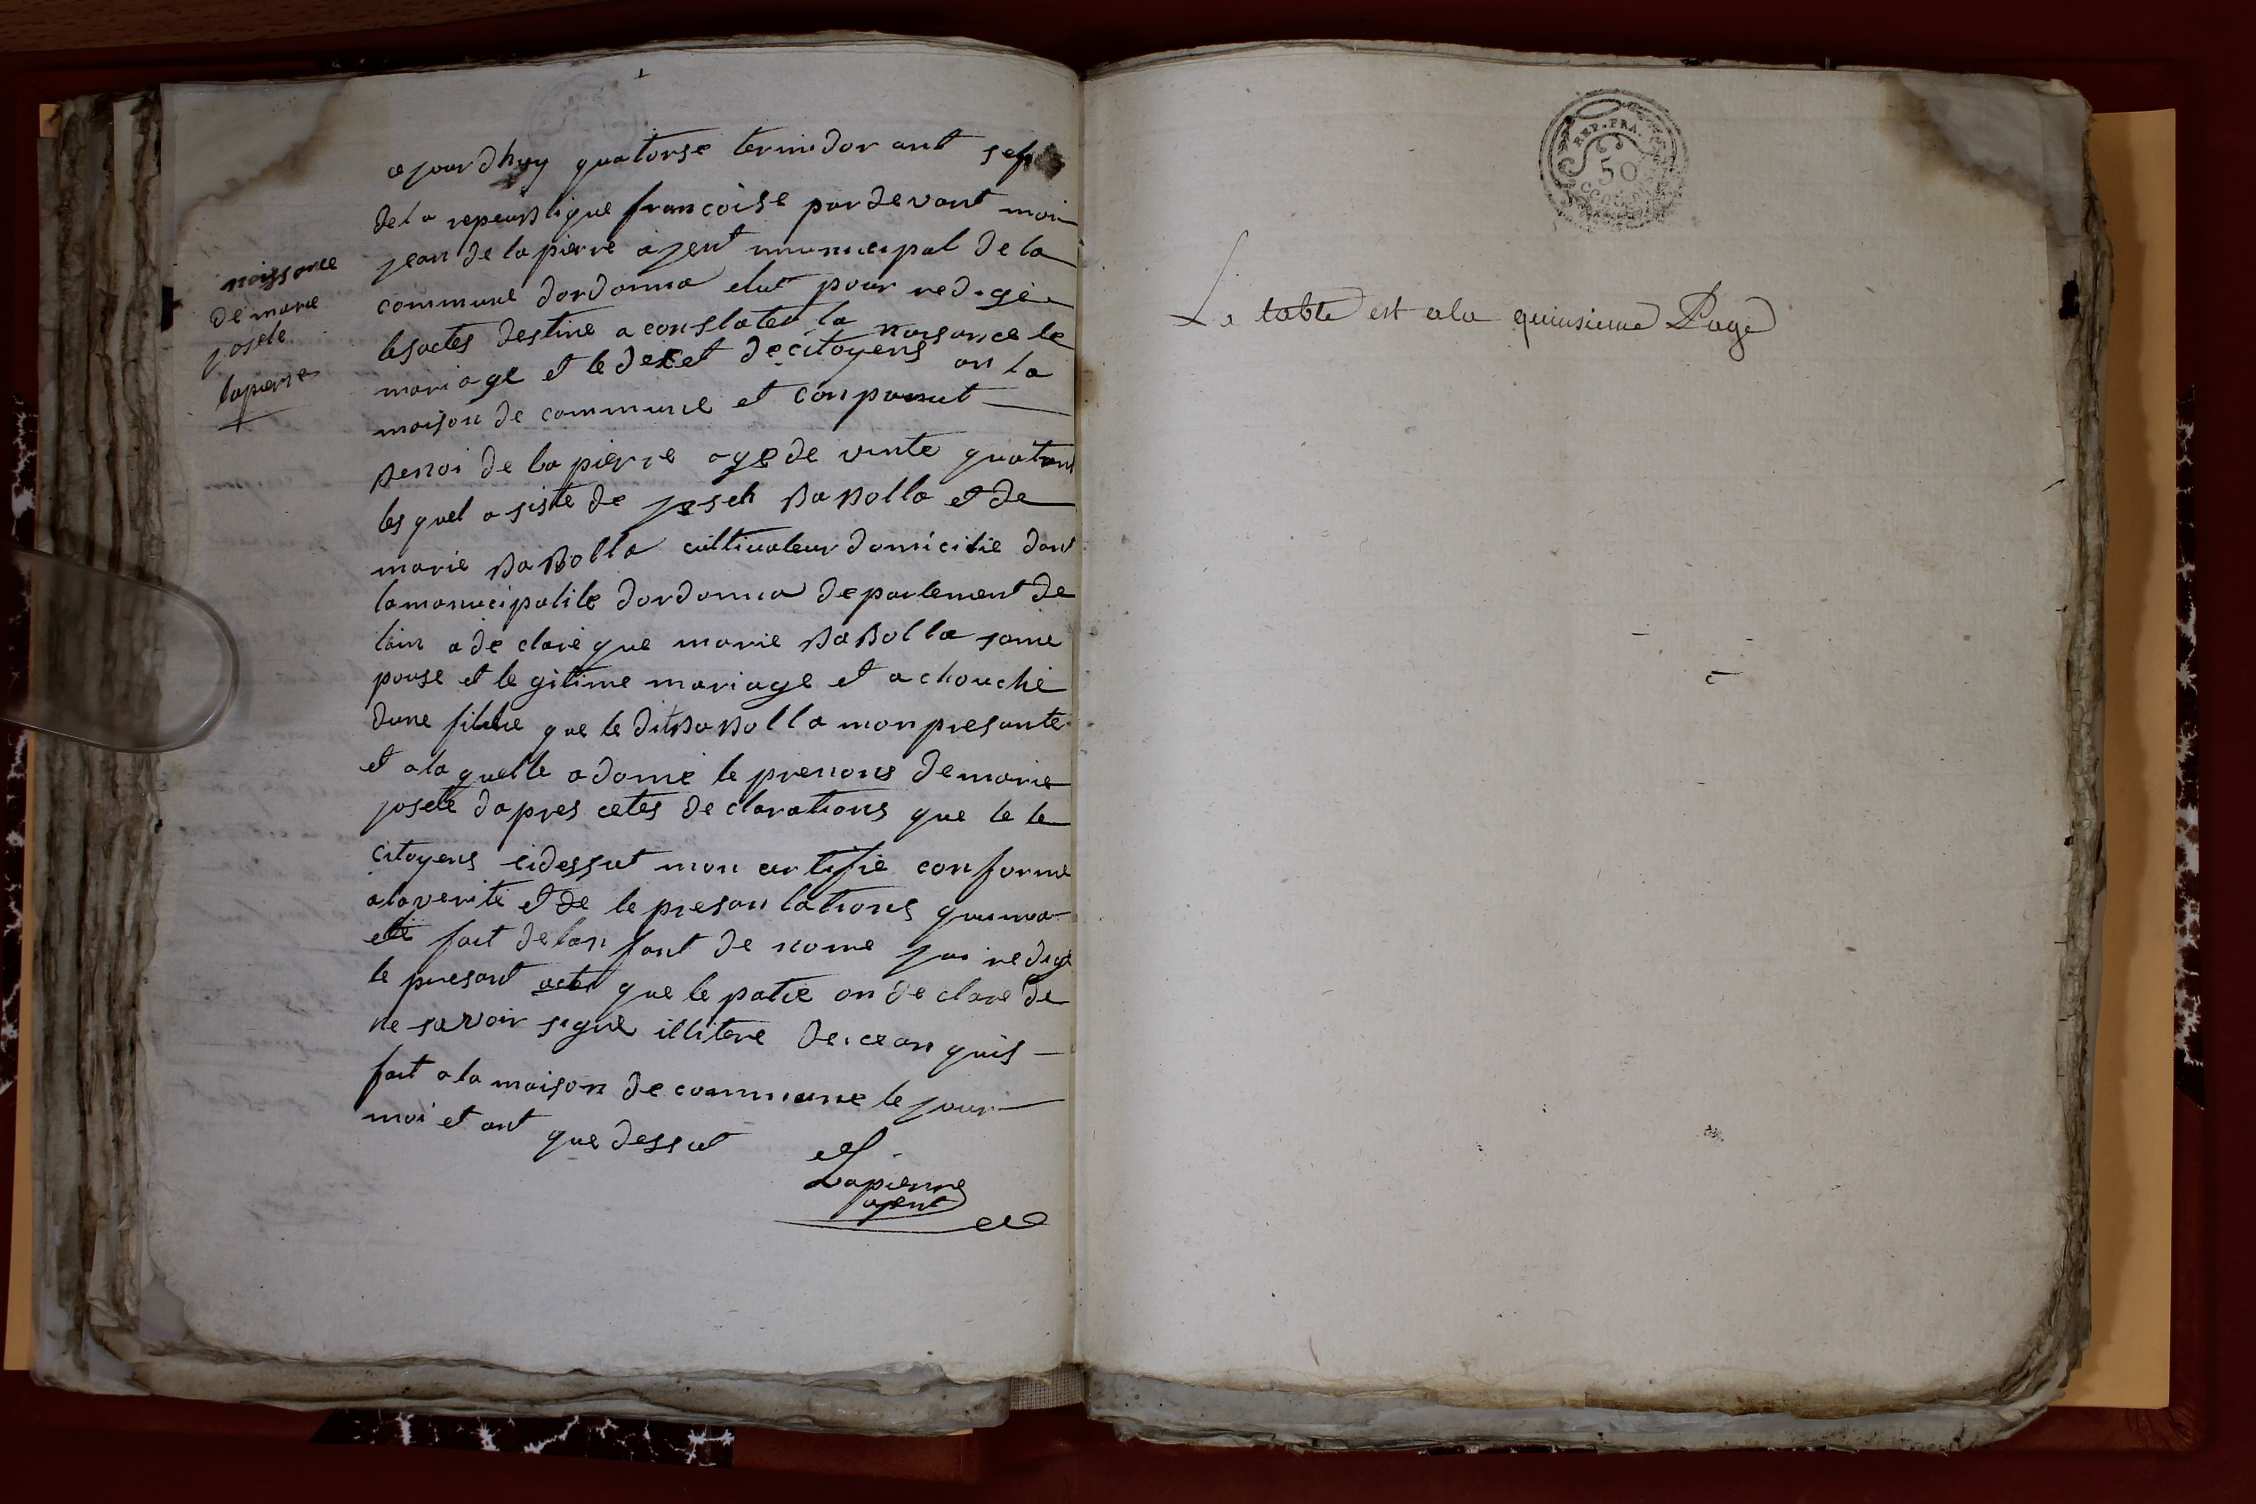 naissance
de marie
josete
lapierre
ce jour dhuy quatorse termidor ant sept
de la repeublique francoise par devant moi
jean de la pierre ajent municipal de la
commune dordonna elut pour redige
les actes destine a constater la naisance le
mariage et le deset de citoyens an la
maison de commune et conparut
Benoi de la pierre age de vinte quatre
les quel asiste de joseh BaBolla et de
marie BaBolla cultivateur domicilie dans
la municipalite dordonna departement de
lain a de clare que marie BaBolla son e
pouse et le gitime mariage et a chouche
dune fillie que le dit BaBolla mon presante
et a la quelle a donne le prenons de marie
josete dapres cetes de clarations que le le
citoyens cidessut mon certifie conforme
a la verite et de le presantations qui ma
ete fait de lan fant de nome jai redige
le presant acte que le patie on de clare de
ne savoir signe illitere de ce an quis
fait a la maison de commune le jour
moi et ant que dessut
Lapierre
ajent
REP. FRA.
50
CENT.
La table est a la quinsieme Page